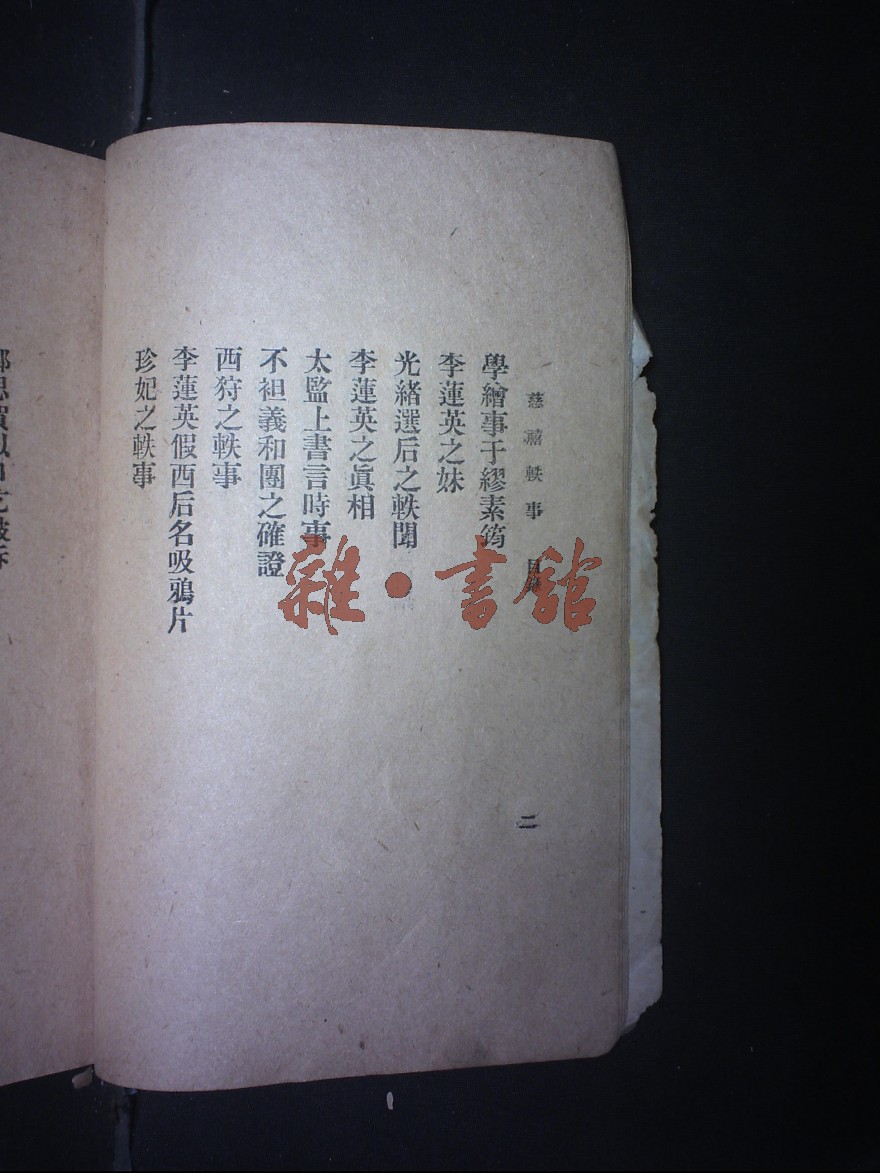 慈禧軼事 目錄
二
學繪事于繆素筠
李蓮英之妹
光緒選后之軼聞
李蓮英之眞相
太監上書言時事
不袒義和團之確證
西狩之軼事
李蓮英假西后名吸鴉片
珍妃之軼事
雜·書館